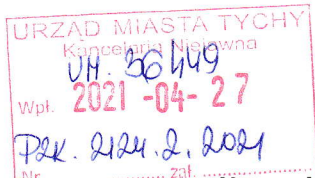 URZĄD MIASTA TYCHY
Kancelaria Niejawna
UM. 36449
Wpł. 2021 -04- 27
PZK. 2124.2.2021
Nr ............ zał. ............